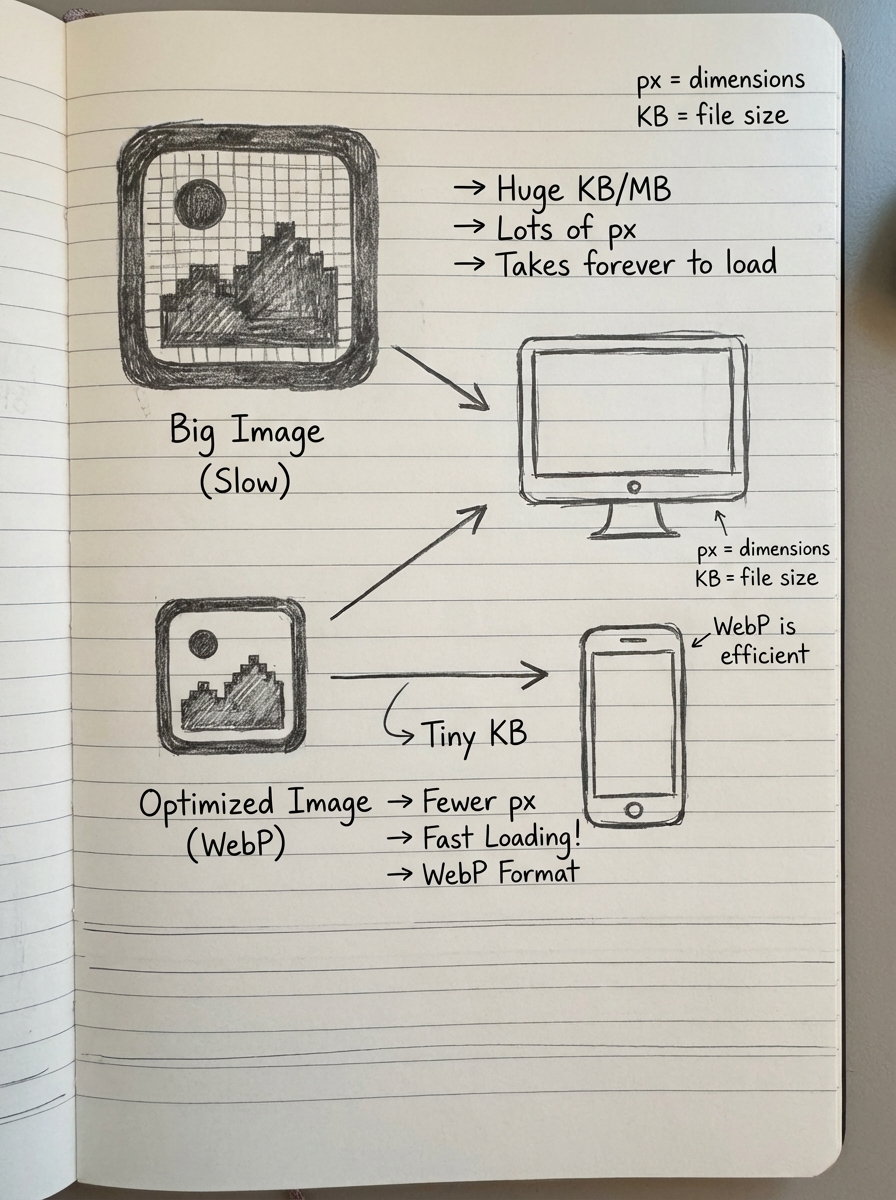 px = dimensions
KB = file size
→ Huge KB/MB
→ Lots of px
→ Takes forever to load
Big Image
(Slow)
px = dimensions
KB = file size
WebP is
efficient
Tiny KB
Optimized Image → Fewer px
(WebP) → Fast Loading!
→ WebP Format